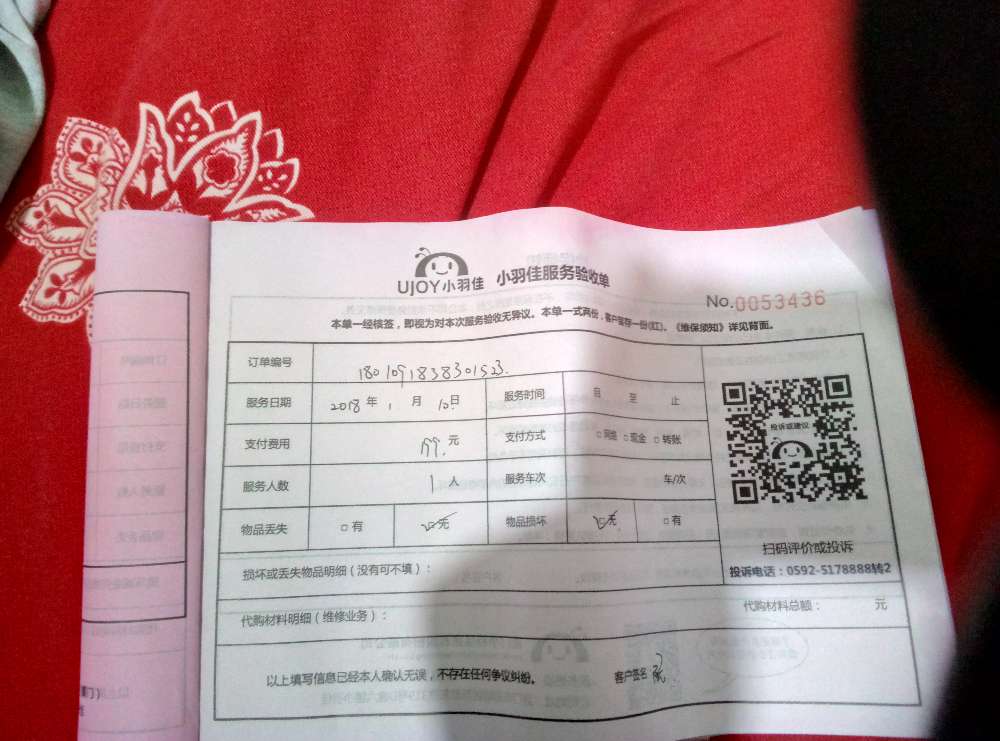 UJOY小羽佳 小羽佳服务验收单
No.0053436
本单一经核签，即视为对本次服务验收无异议。本单一式两份，客户留存一份(红)。《维保须知》详见背面。
订单编号 1801091838301523
服务日期 2018年 1 月 10日 服务时间 自 至 止
支付费用 元 支付方式 □网金 □现金 □转账
服务人数 1 人 服务车次 车/次
物品丢失 □有 □无 物品损坏 □无 □有
投诉或建议
扫码评价或投诉
投诉电话：0592-5178888转2
损坏或丢失物品明细（没有可不填）：
代购材料明细（维修业务）： 代购材料总额： 元
以上填写信息已经本人确认无误，不存在任何争议纠纷。 客户签名